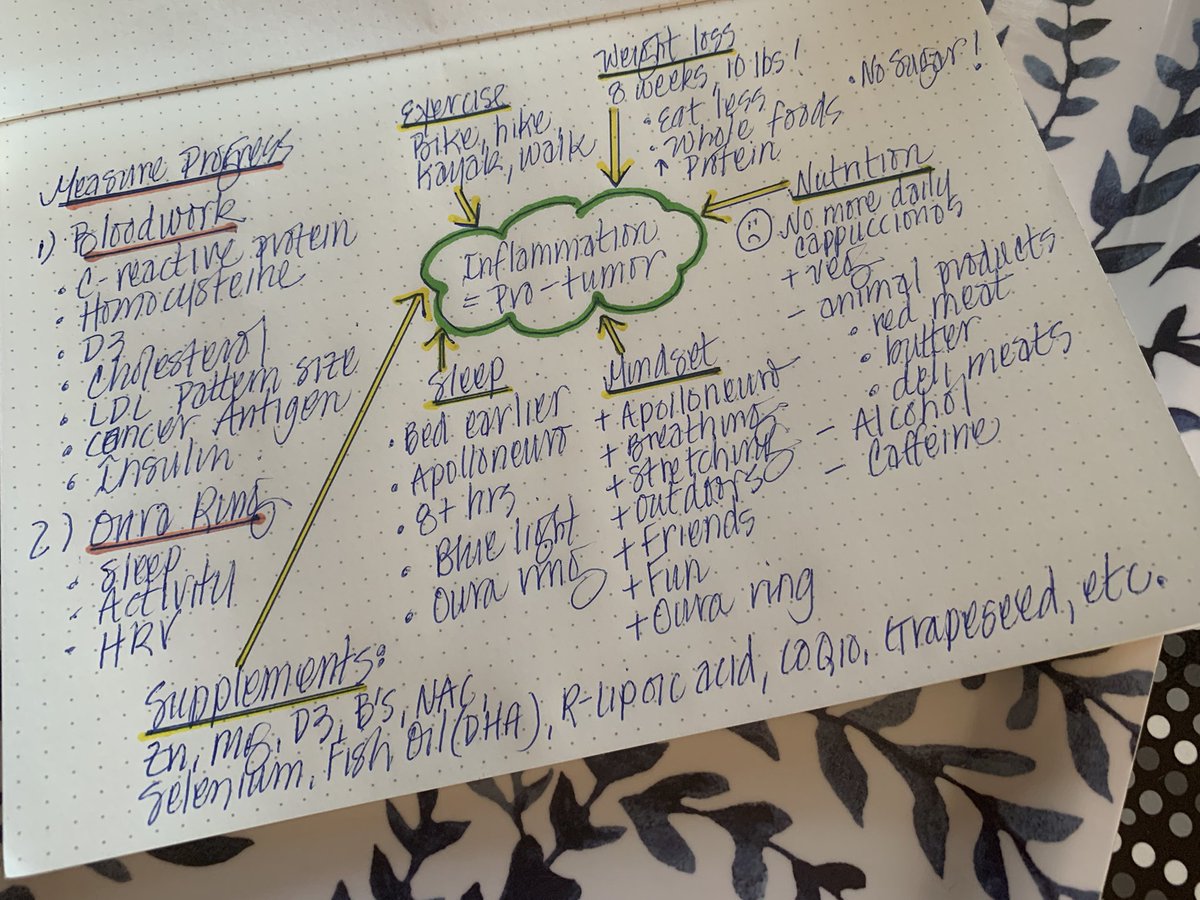 Measure Progress
1) Bloodwork
• C-reactive protein
• Homocysteine
• D3
• Cholesterol
• LDL Pattern size
• Cancer Antigen
• Insulin
2) Oura Ring
• Sleep
• Activity
• HRV
Exercise
Bike, hike
kayak, walk
Weight loss
8 weeks, 10 lbs!
• Eat less
• Whole foods
↑ Protein
• No sugar!
Inflammation
= Pro-tumor
Nutrition
☹ No more daily
cappuccinos
+ veg
- animal products
• red meat
• butter
• deli meats
- Alcohol
- Caffeine
Sleep
• Bed earlier
• Apolloneuro
• 8+ hrs
• Blue light
• Oura ring
Mindset
+ Apolloneuro
+ Breathing
+ Stretching
+ Outdoors
+ Friends
+ Fun
+ Oura ring
Supplements:
Zn, Mg, D3, B's, NAC,
Selenium, Fish Oil (DHA), R-Lipoic acid, CoQ10, Grapeseed, etc.